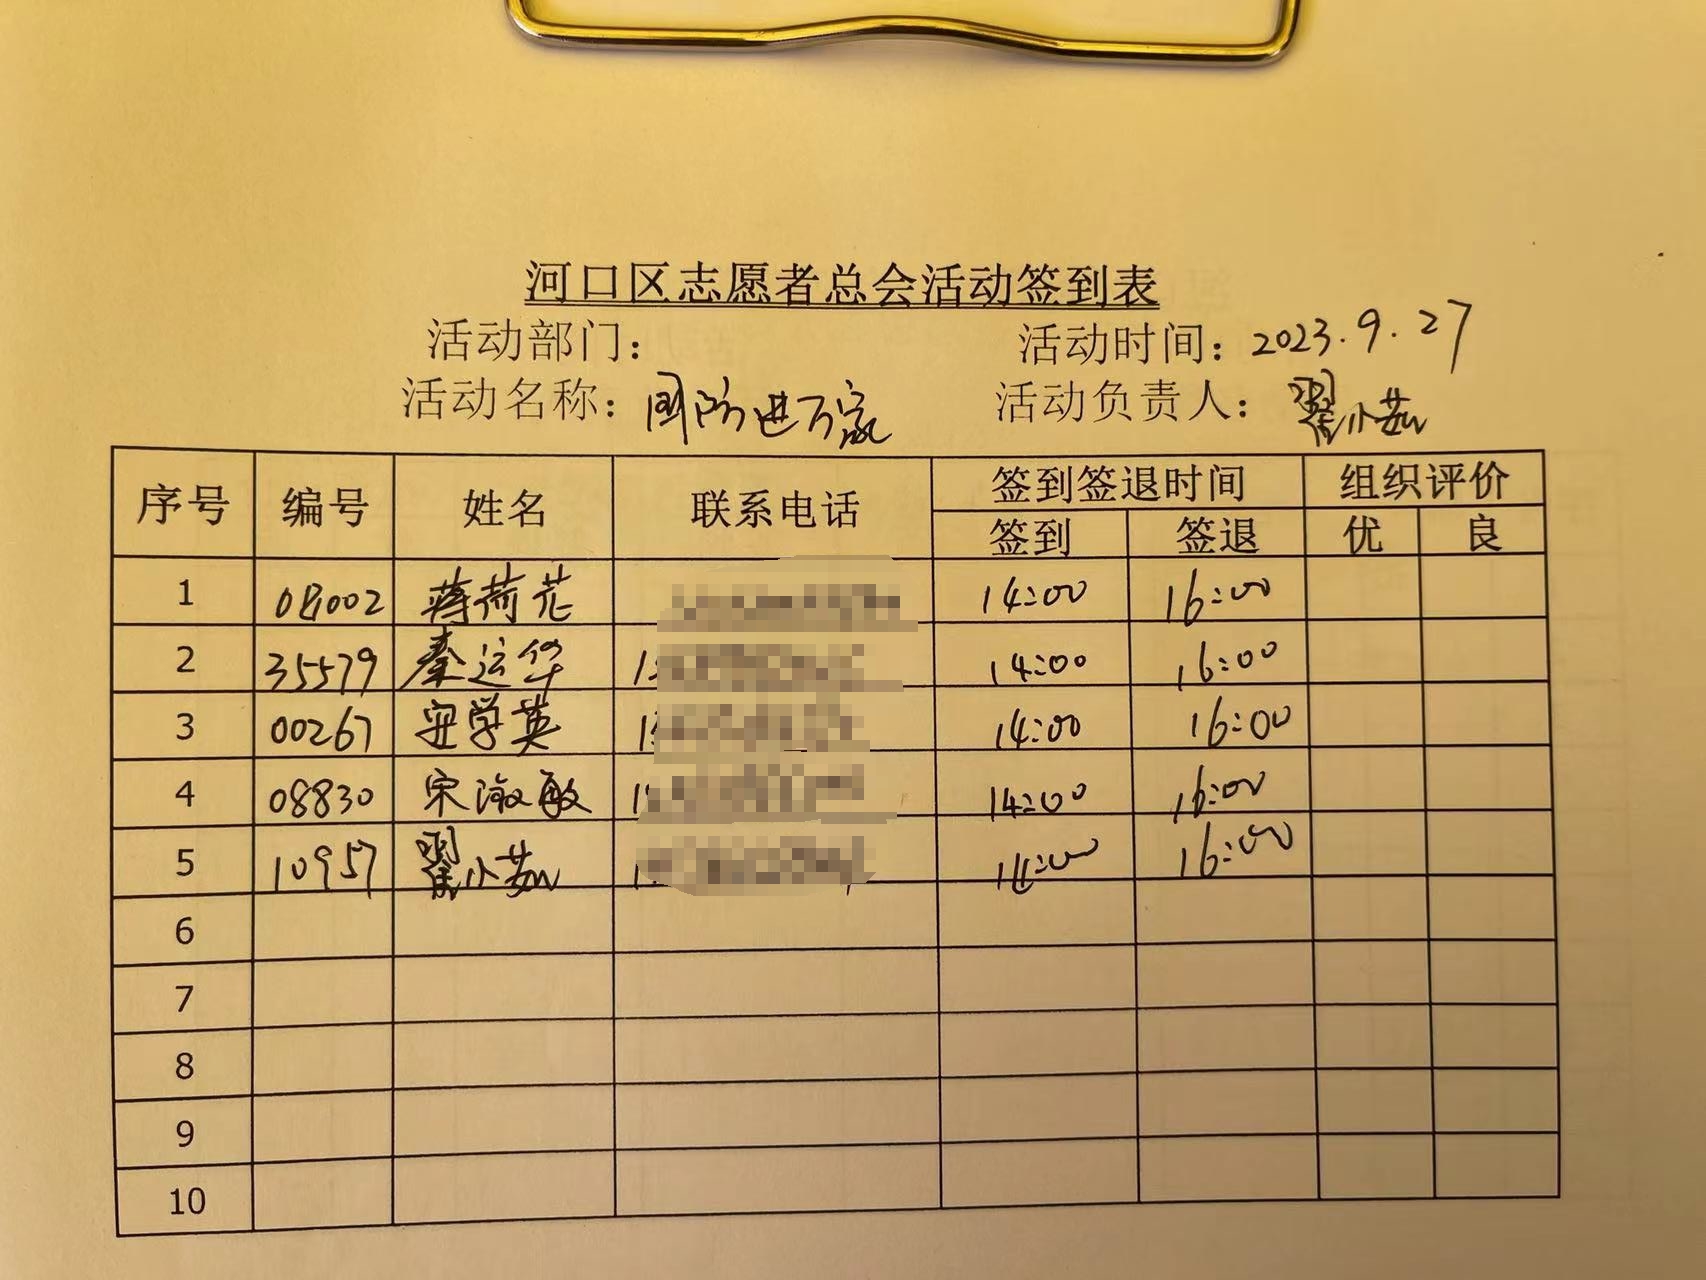 河口区志愿者总会活动签到表
活动部门： 活动时间：2023.9.27
活动名称：国防进万家 活动负责人：翟小茹
序号 编号 姓名 联系电话 签到签退时间 组织评价
签到 签退 优 良
1 08002 蒋荷花 14:00 16:00
2 35579 秦运华 14:00 16:00
3 00267 安学英 14:00 16:00
4 08830 宋淑敏 14:00 16:00
5 10957 翟小茹 14:00 16:00
6
7
8
9
10